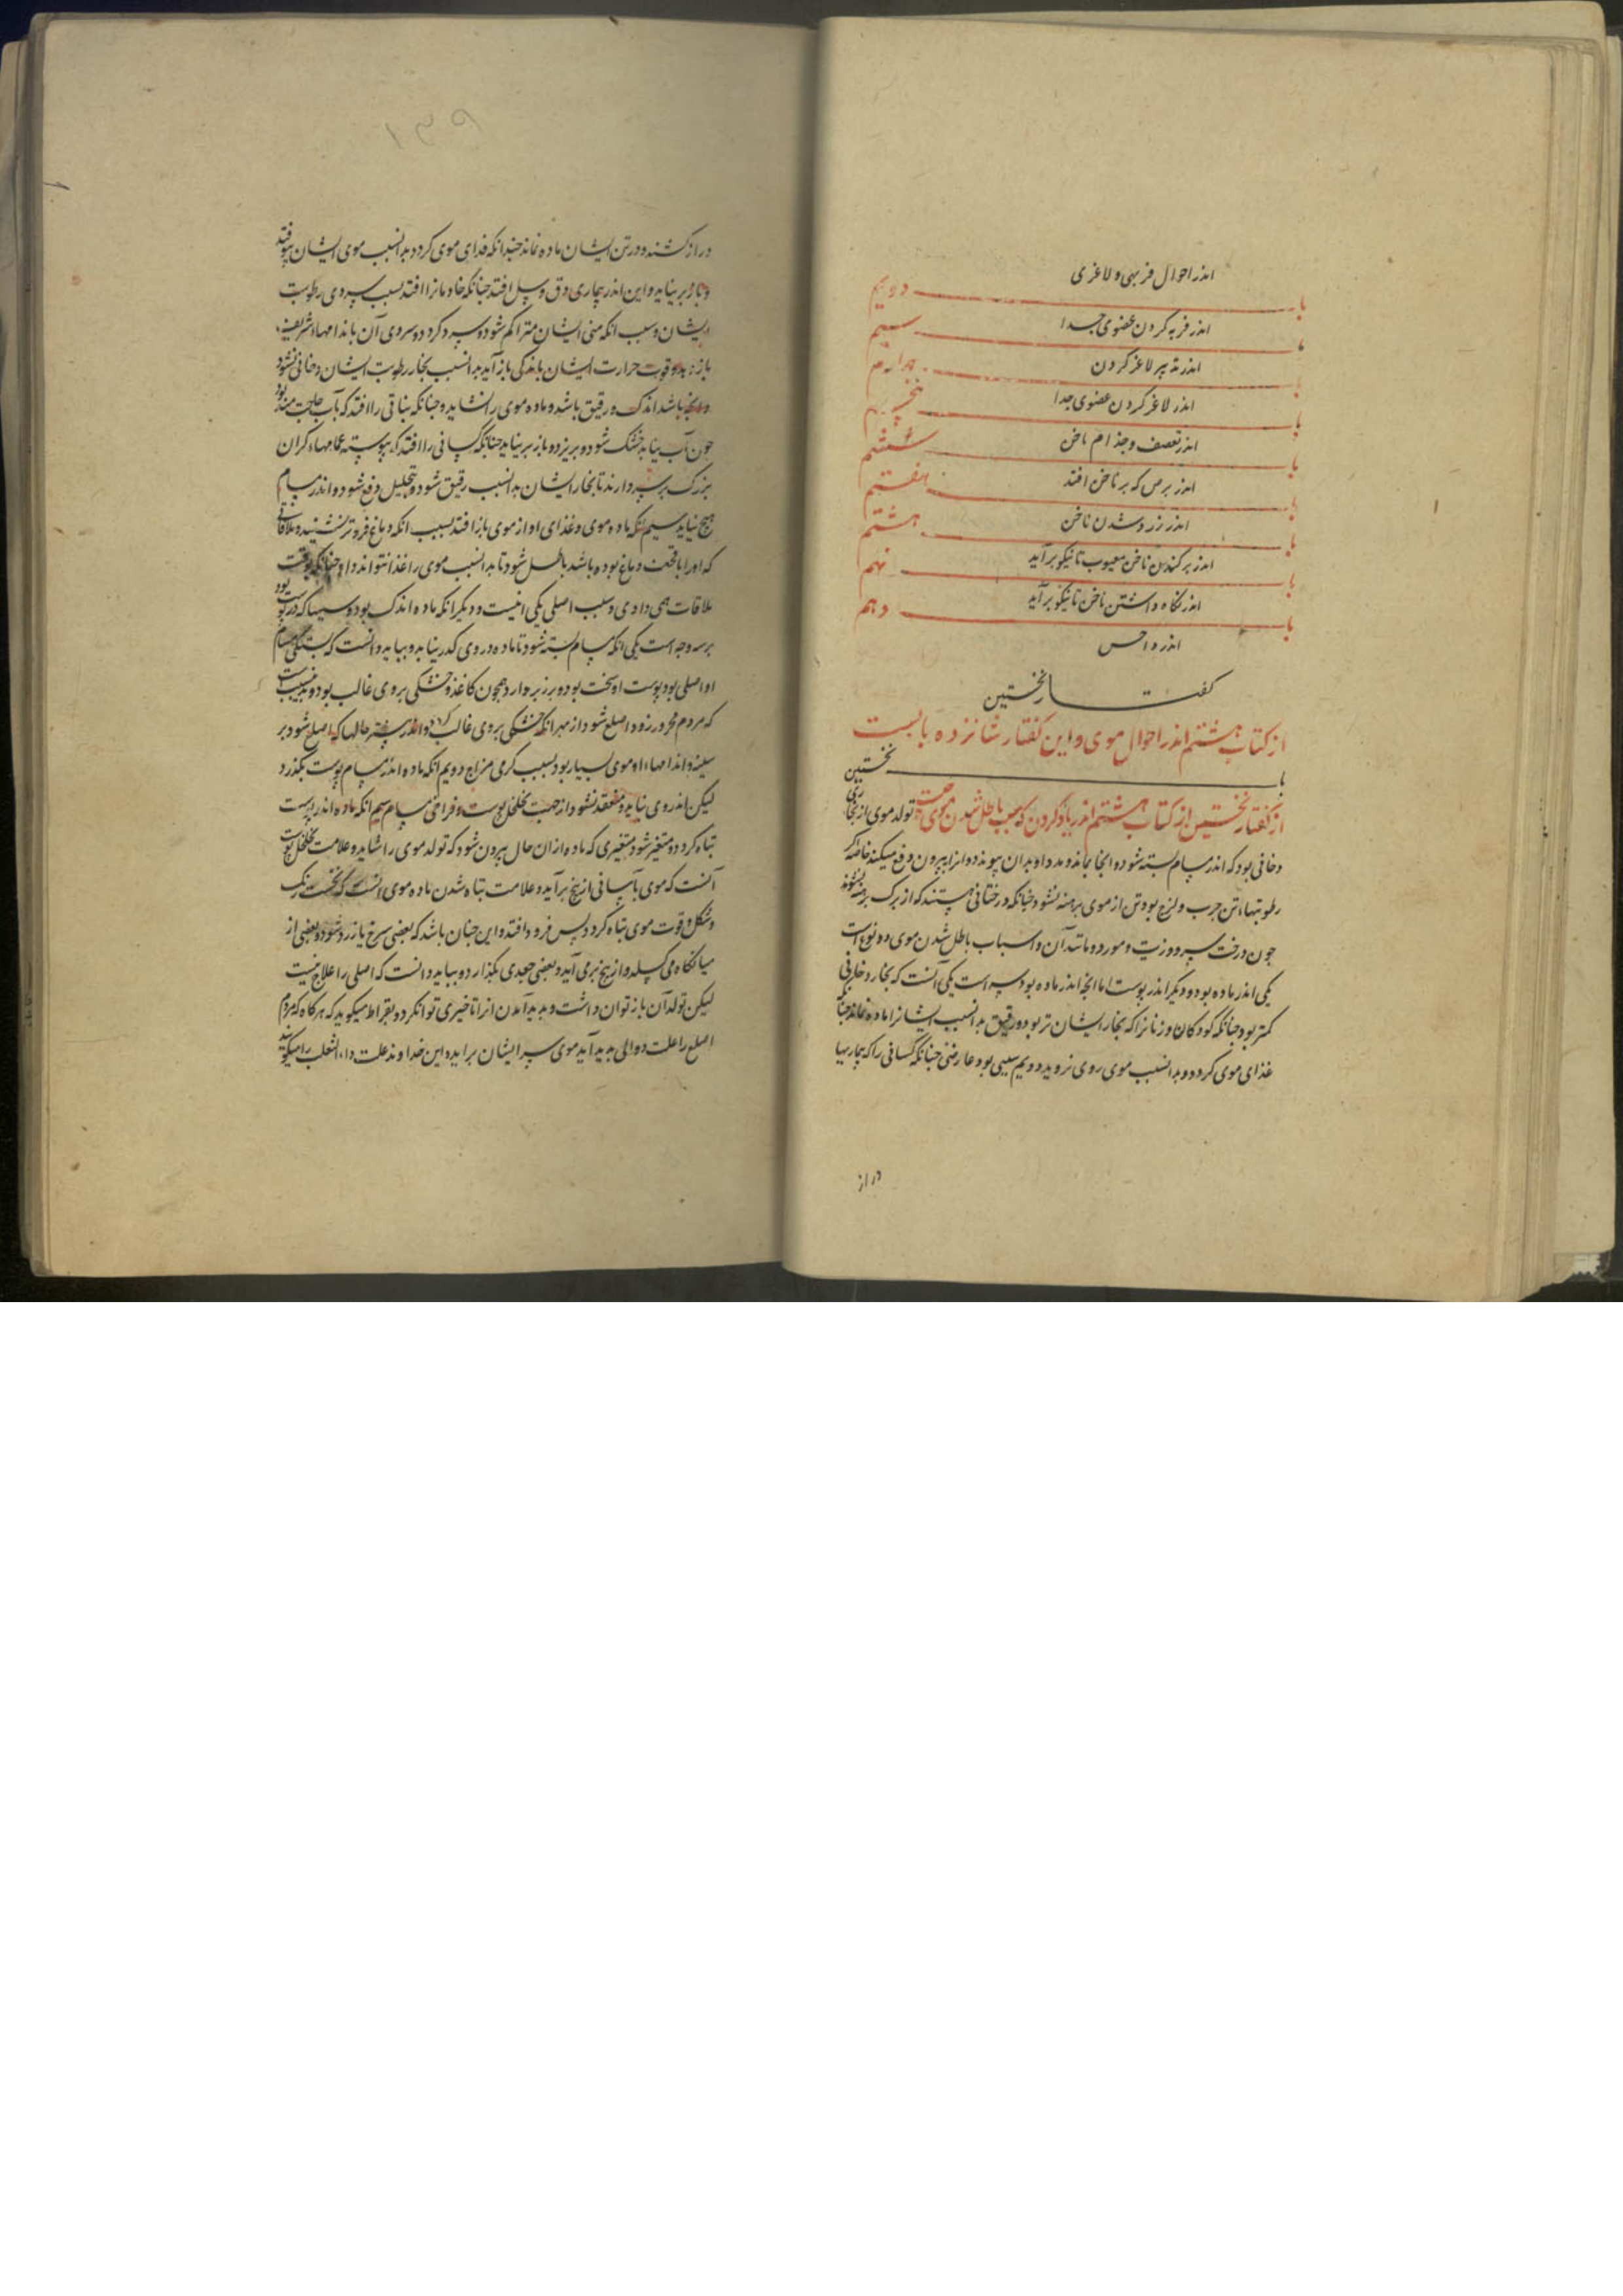 اندر احوال فربهی و لاغری
باب دویم
اندر فربه کردن عضوی جدا
باب سیم
اندر تدبیر لاغر کردن
باب چهارم
اندر لاغر کردن عضوی جدا
باب پنجم
اندر تعصف و جذام ناخن
باب ششم
اندر برص که بر ناخن افتد
باب هفتم
اندر زرد شدن ناخن
باب هشتم
اندر برکندن ناخن معیوب تا نیکو برآید
باب نهم
اندر نکاه داشتن ناخن تا نیکو برآید
باب دهم
اندر داحس
کفتار نخستین
از کتاب هشتم اندر احوال موی و این کفتار شانزده بابست
باب نخستین
از کفتار نخستین از کتاب هشتم اندر یاد کردن سبب باطل شدن موی تولد موی از بخاری
دخانی بود که اندر مسام بسته شود و انجا بماند و مدد او بدان پیوندد و انرا بیرون دفع میکند خاصه که
رطوبتهاء تن چرب و لزج بود و تن از موی برهنه نشود چنانکه درختانی هستند که از برک برهنه نشوند
چون درخت سرو و زیت و مورد و مانند آن و اسباب باطل شدن موی دو نوع است
یکی اندر ماده بود و دیکر اندر پوست اما انچه اندر ماده بود سه است یکی آنست که بخار دخانی
کمتر بود چنانکه کودکان و زنانرا که بخار ایشان تر بود و رقیق بدانسبب ایشانرا ماده نماند چنانکه
غذای موی کردد و بدانسبب موی روی نروید دویم سببی بود عارضی چنانکه کسانی را که بیماریها
دراز
دراز کشند و در تن ایشان ماده نماند چندانکه غذای موی کردد بدانسبب موی ایشان بیوفتد
و باز بر نیاید و این اندر بیماری دق و سل افتد چنانکه خادمانرا افتد بسبب سردی رطوبت
ایشان و سبب انکه منی ایشان متراکم شود و سرد کردد و سردی آن باندامهاء شریف
باز و قوت حرارت ایشان باندکی باز آید بدانسبب بخار رطوبت ایشان دخانی نشود
و انچه باشد اندک و رقیق باشد و ماده موی را نشاید و چنانکه نباتی را افتد که بآب حاجتمند بود
چون آب نیابد خشک شود و بریزد و باز بر نیاید چنانکه کسانی را افتد که پیوسته عمامهاء کران
بزرک بر سر دارند تا بخار ایشان بدانسبب رقیق شود و بتحلیل دفع شود و اندر مسام
هیچ نیاید سیم انکه ماده موی و غذای او از موی باز افتد بسبب انکه دماغ فروتر نشیند و ملاقاتی
که او را با قحف دماغ بوده باشد باطل شود تا بدانسبب موی را غذا نتواند داد چنانکه بوقت
ملاقات همی دادی و سبب اصلی یکی اینست و دیکر انکه ماده اندک بود و سببها که در پوست بود
بر سه وجه است یکی انکه مسام بسته شود تا ماده در وی کذر نیابد و بباید دانست که بستکی مسام
او اصلی بود پوست او سخت بود و بر زبر وار همچون کاغذ و خشکی بر وی غالب بود و بدین سبب است
که مردم محرور زود اصلع شود از بهر انکه خشکی بر وی غالب کردد و اندر بیشتر حالها که اصلع شود بر
سینه و اندامهاء او موی بسیار بود بسبب کرمی مزاج دویم انکه ماده اندر مسام پوست بکذرد
لیکن اندر وی نیاید و منعقد نشود از جهت تخلخل پوست و فراخی مسام سیم انکه ماده اندر پوست
تباه کردد و متغیر شود متغیری که ماده از ان حال بیرون شود که تولد موی را شاید و علامت تخلخل پوست
آنست که موی بآسانی از بیخ برآید و علامت تباه شدن ماده موی انست که نخست رنک
و شکل و قوت موی تباه کردد پس فرود افتد و این چنان باشد که بعضی سرخ یا زرد شود و بعضی از
میانکاه می کسلد و از بیخ برمی آید و بعضی جعدی بکذارد و بباید دانست که اصلی را علاج نیست
لیکن تولد آن باز توان داشت و بدید آمدن انرا تاخیری توان کرد و بقراط میکوید که هرکاه که مردم
اصلع را علت دوالی بدید آید موی سر ایشان برآید و این خداوند علت داء الثعلب را میکوید